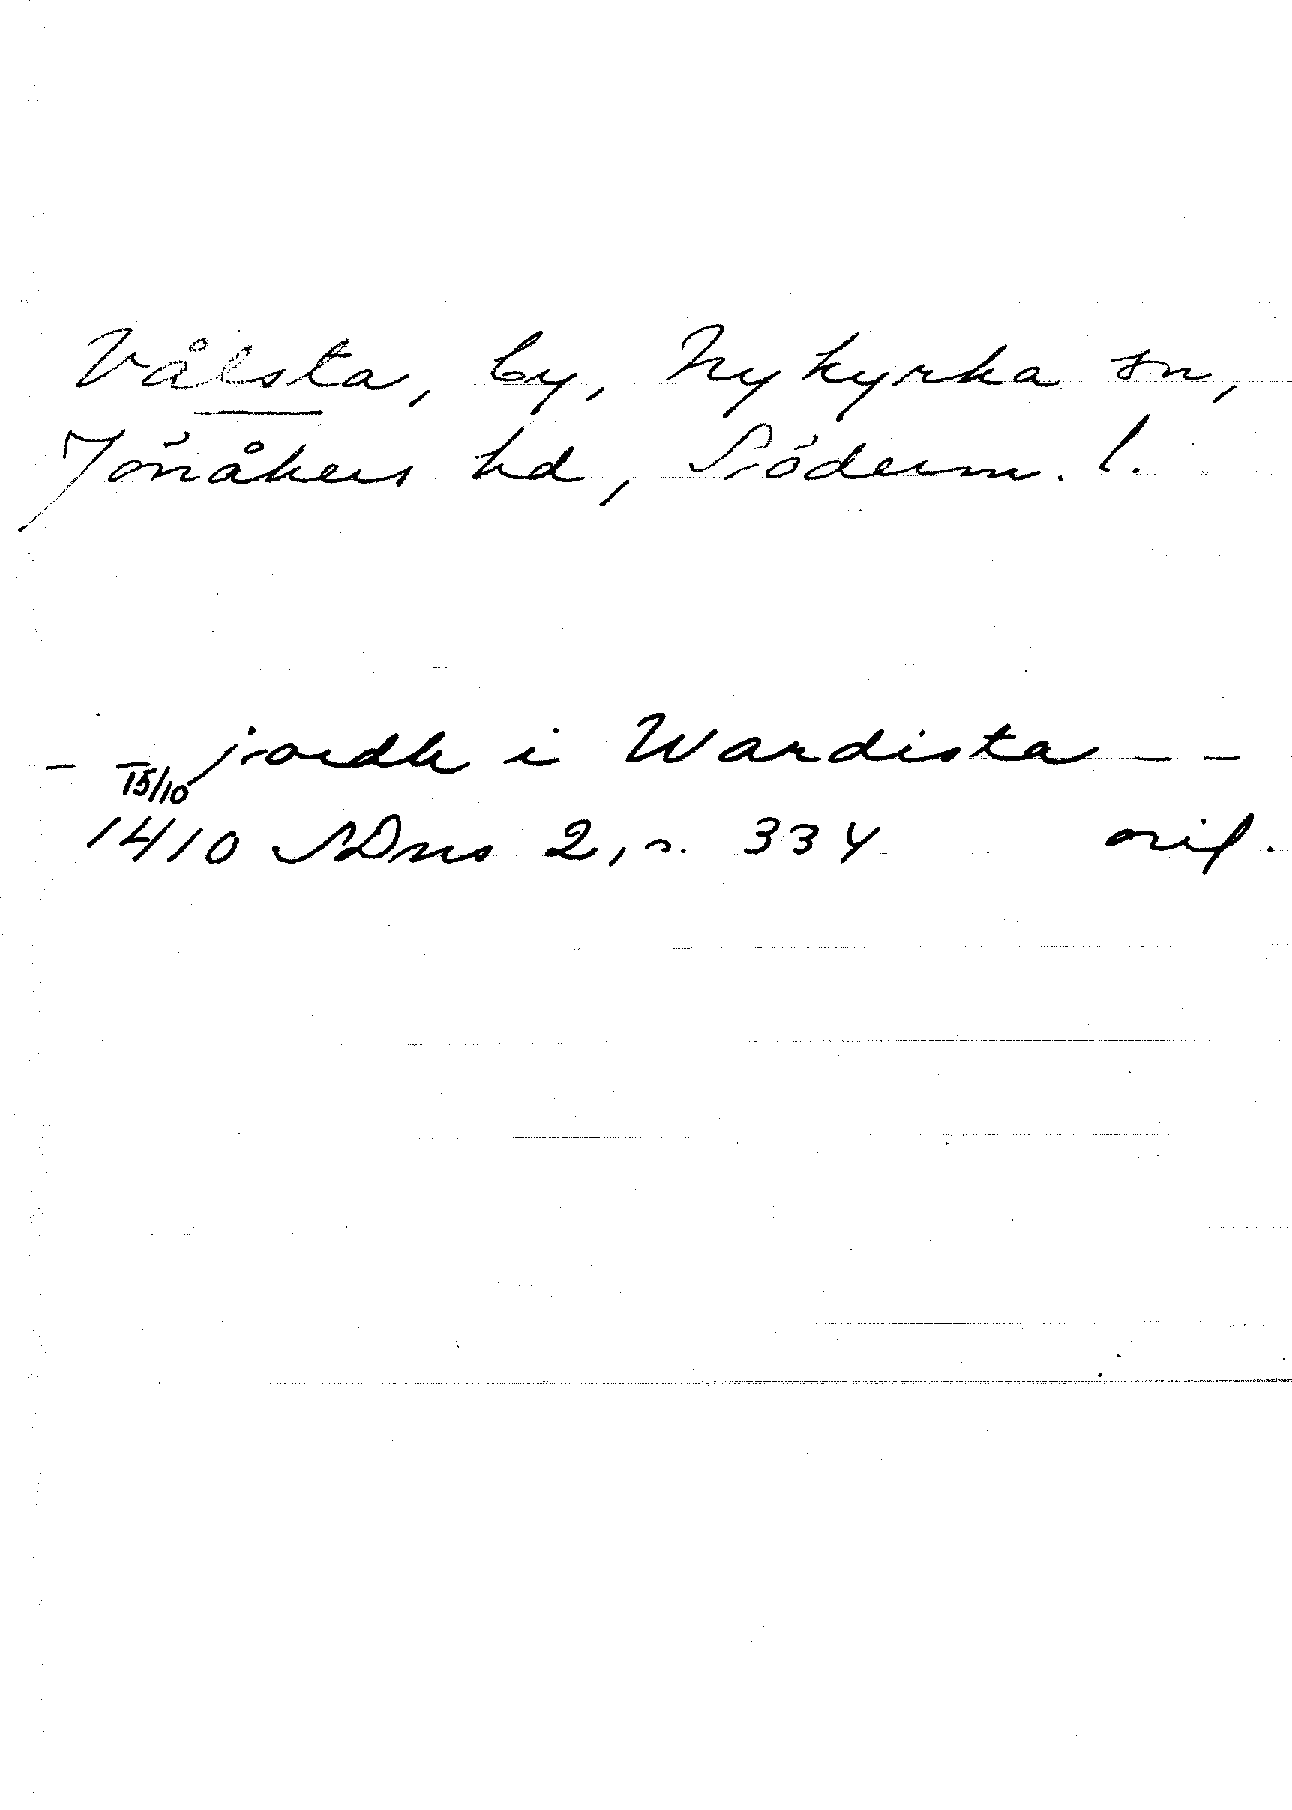 Vålsta, by, Nykyrka sn,
Jönåkers hd, Söderm. l.
- - jordh i Wardista - -
15/10
1410 SDns 2, s. 334 orig.